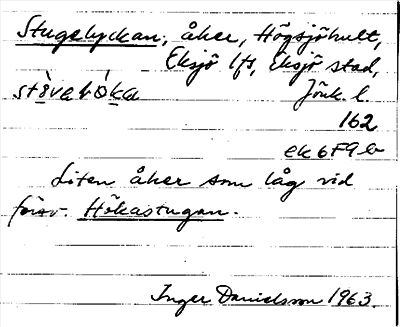 Stugelyckan, åker, Högsjöhult,
Eksjö lfs, Eksjö stad,
Jönk. l.
162
ek 6F9b
Liten åker som låg vid
försv. Hökastugan.
Inger Danielsson 1963.